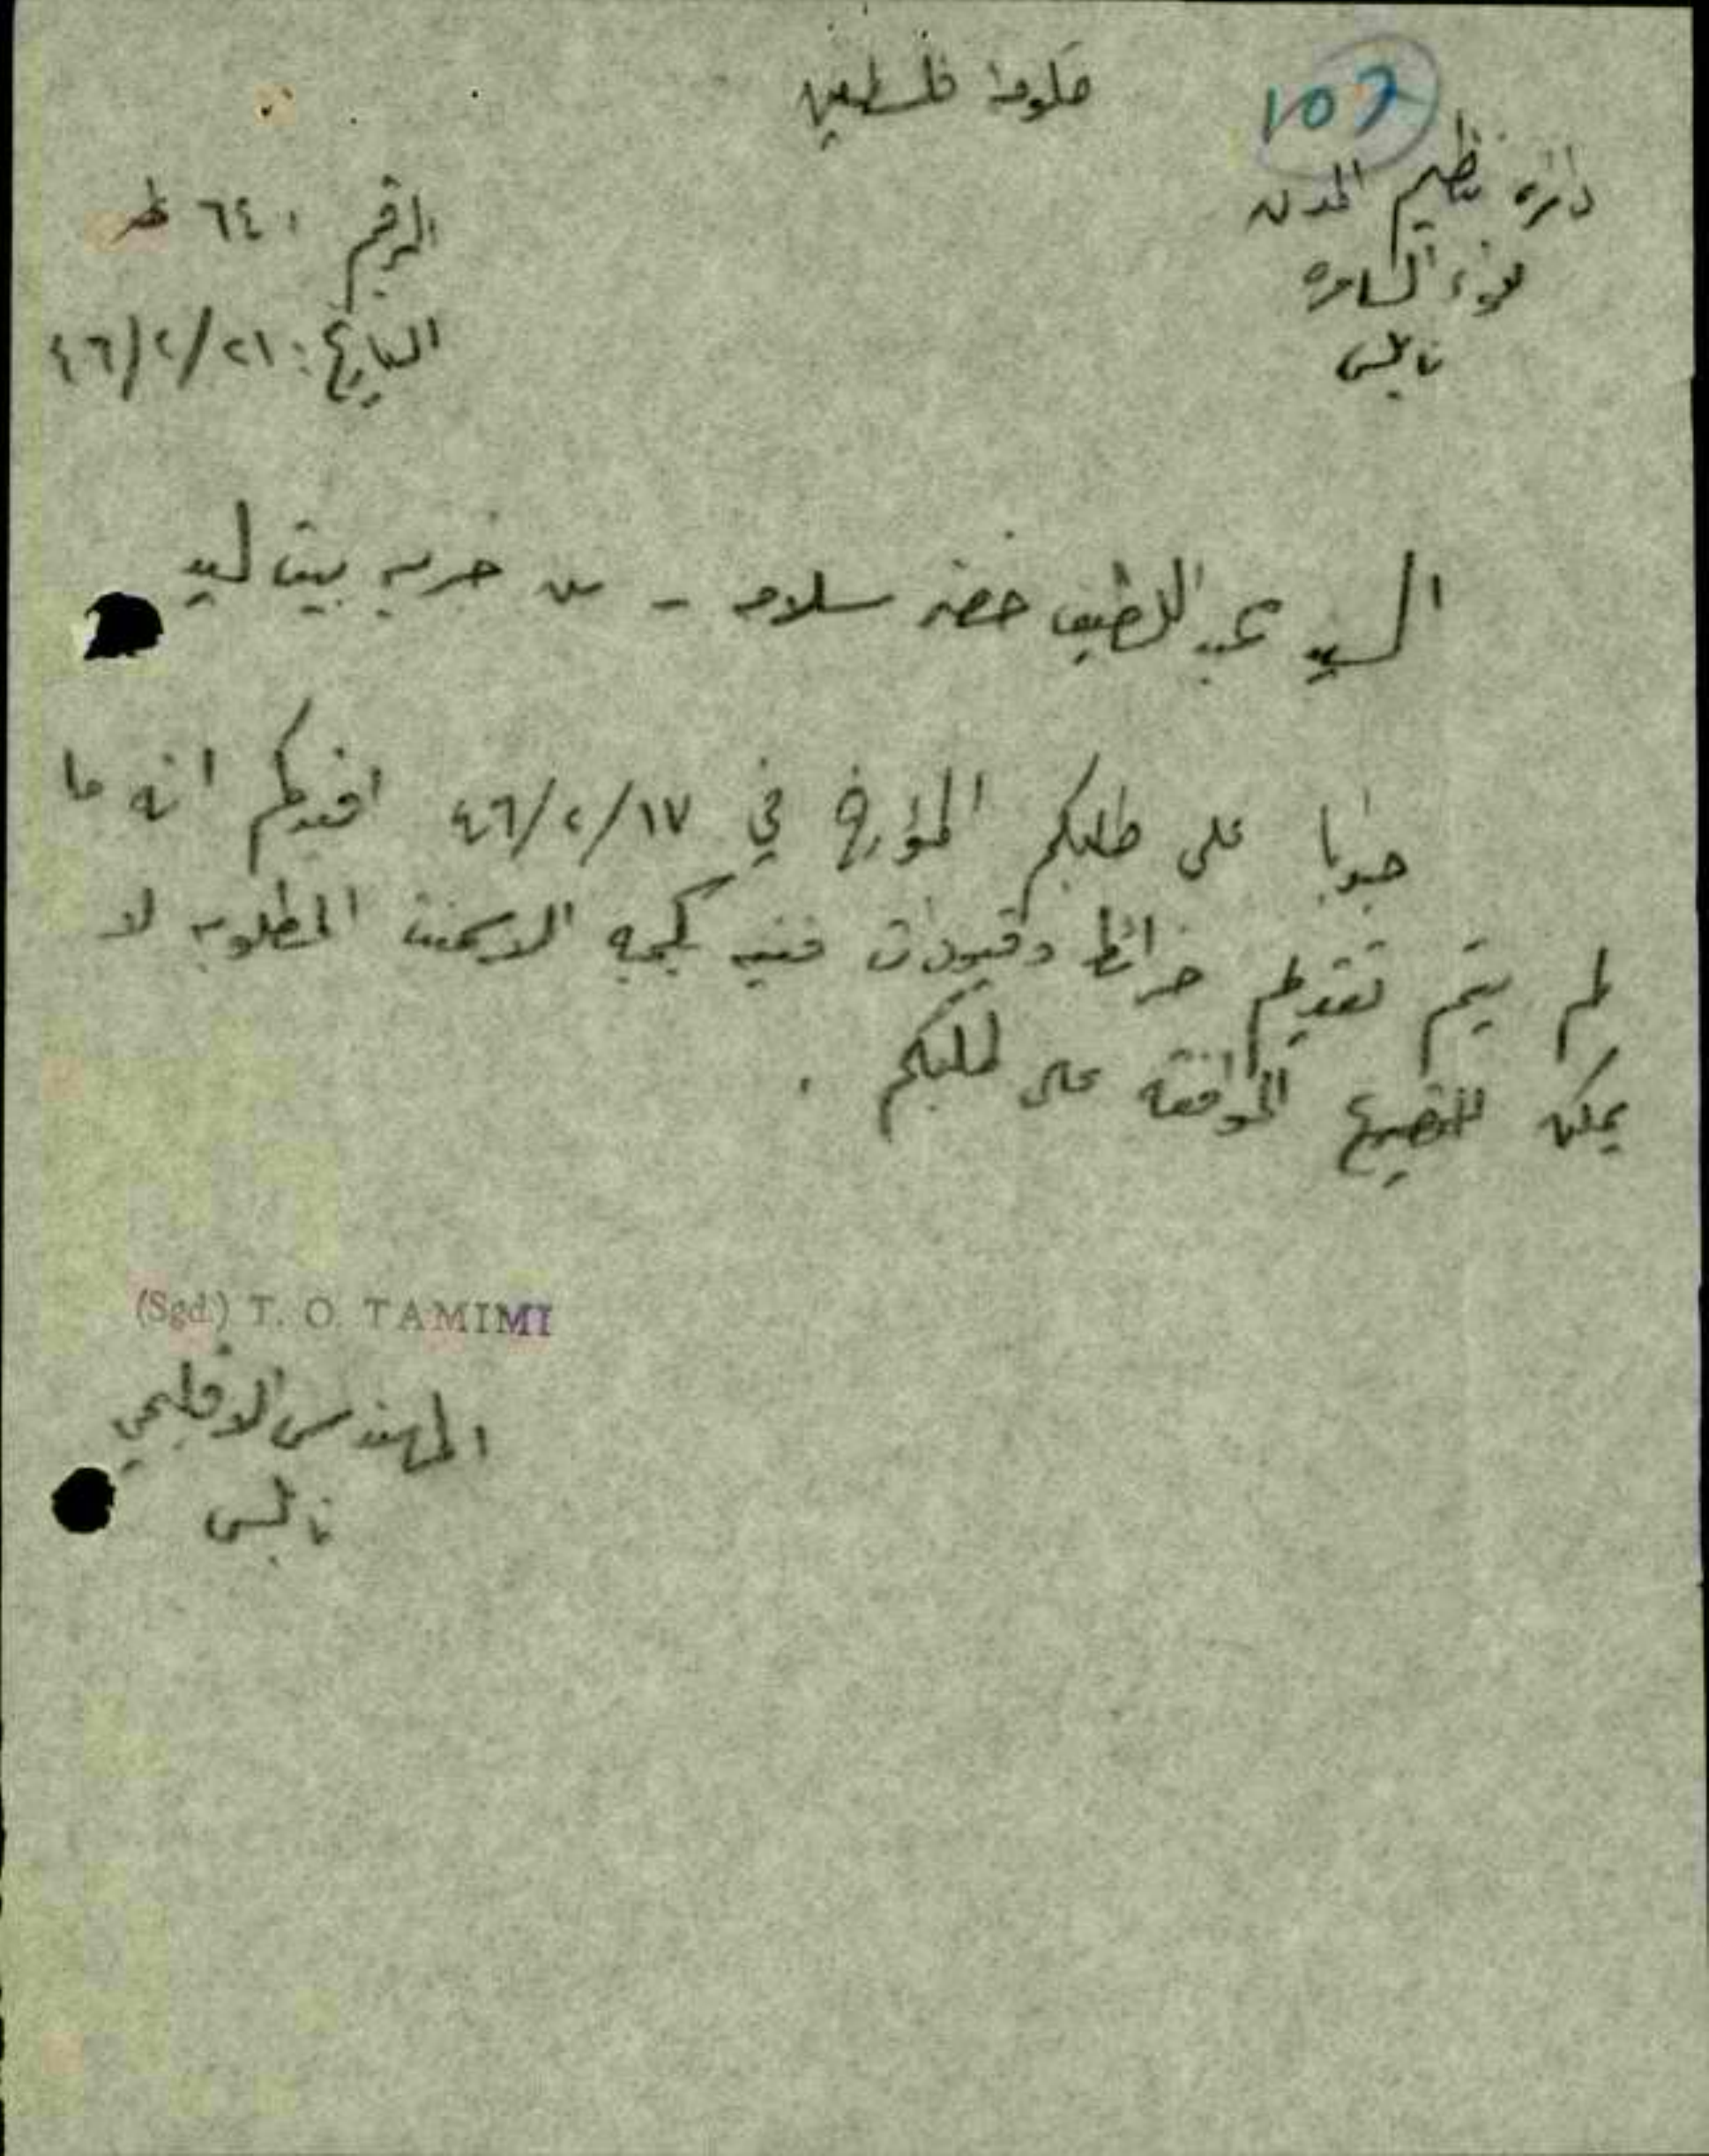 حكومة فلسطين
107
دائرة تنظيم المدن
لواء السامره
نابلس
الرقم ٦٤٠ ط
التاريخ: ٤٦/٢/٢١
السيد عبد اللطيف خضر سلامه - من خربه بيت ليد
جوابا على طلبكم المؤرخ في ٤٦/٢/١٧ افيدكم انه ما
لم يتم تقديم خرائط وقيودات فنيه بكميه الاسمنت المطلوبه لا
يمكن الموافقه على طلبكم .
(Sgd.) T. O. TAMIMI
المهندس الاقليمي
نابلس